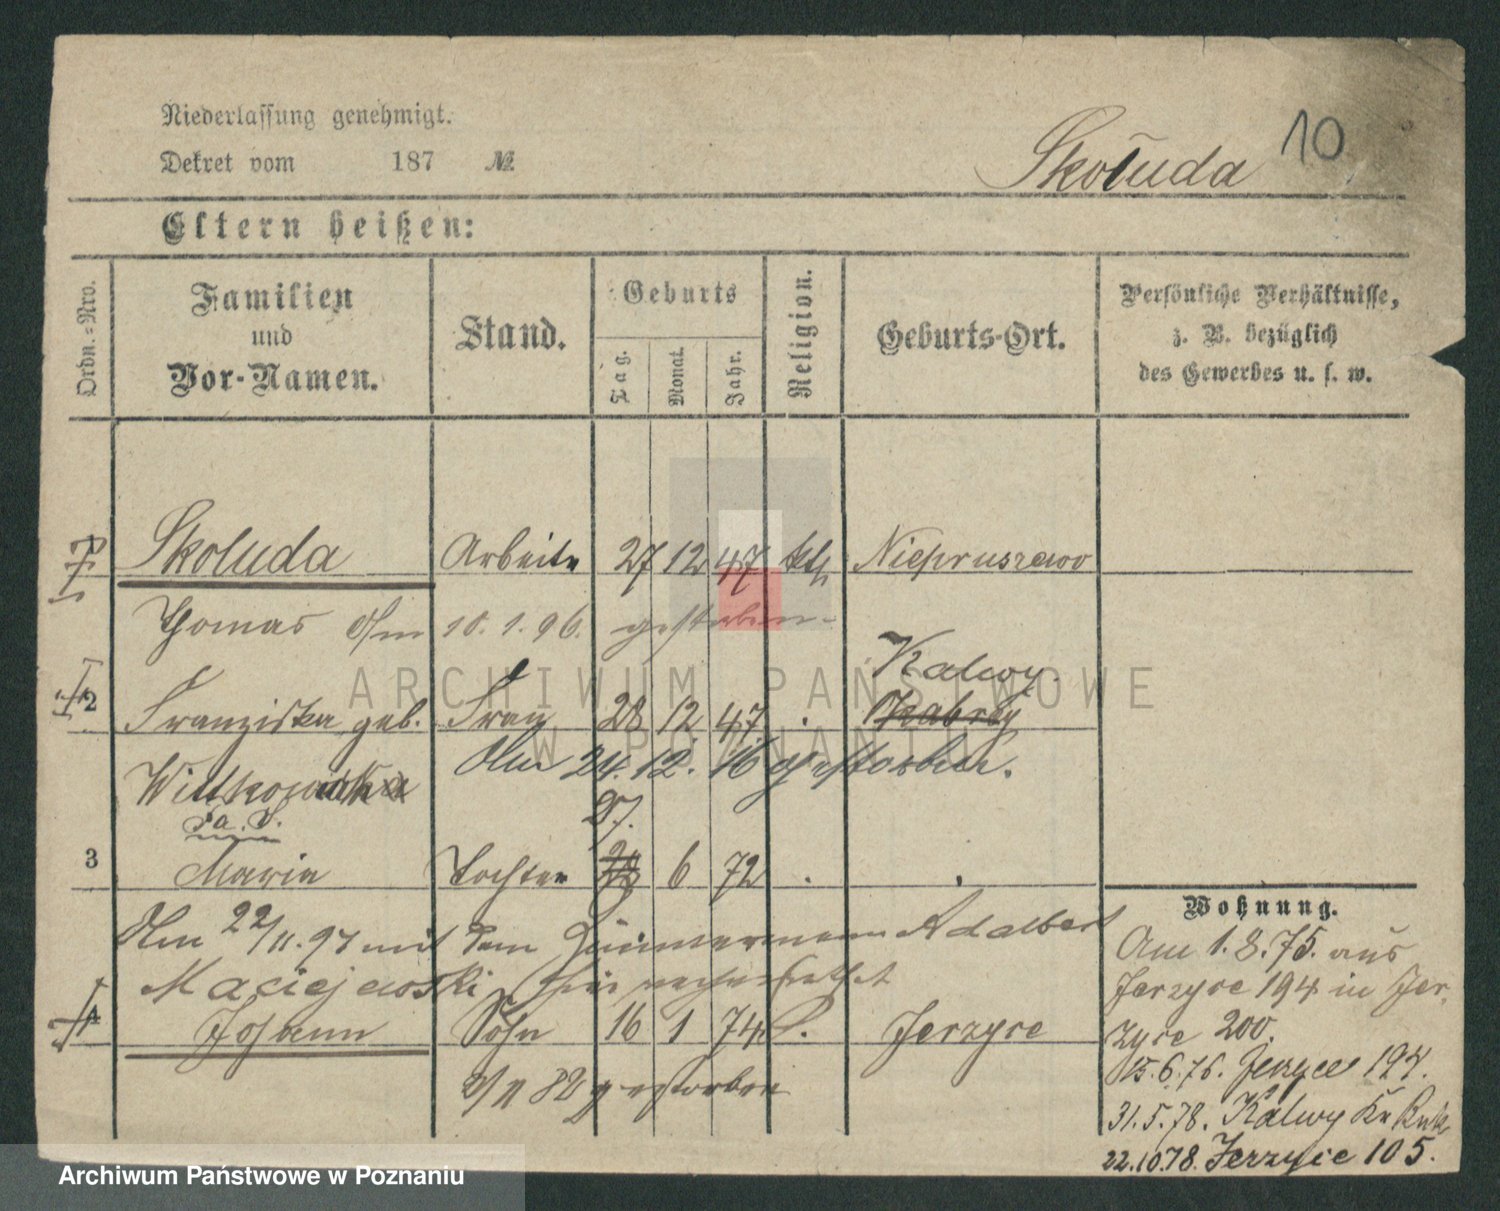 Niederlassung genehmigt.
Dekret vom 187 №
Skoluda 10
Eltern heißen:
Ordn.=Nro. Familien und Vor-Namen. Stand. Geburts Tag. Monat. Jahr. Religion. Geburts-Ort. Persönliche Verhältnisse, z. B. bezüglich des Gewerbes u. s. w.
Skoluda Arbeiter 27 12 47 kth Niepruszewo
Thomas Am 10. 1. 96. gestorben
Kalwy.
2 Franziska geb. Frau 28 12 47 . Kabrey
Am 24. 12. 16 gestorben.
Wittkowska
Fa. S. 27.
3 Maria Tochter 6 72 . .
Am 22/11. 97 mit dem Zimmermann Adalbert
Maciejewski hier verheirathet
4 Johann Sohn 16 1 74 Jerzyce
82 gestorben
Wohnung.
Am 1. 8. 75. aus
Jerzyce 194 in Jer-
zyce 200.
15. 6. 76. Jerzyce 194.
31. 5. 78. Kalwy Kr
22.10.78. Jerzyce 105.
ARCHIWUM PAŃSTWOWE
W POZNANIU
Archiwum Państwowe w Poznaniu